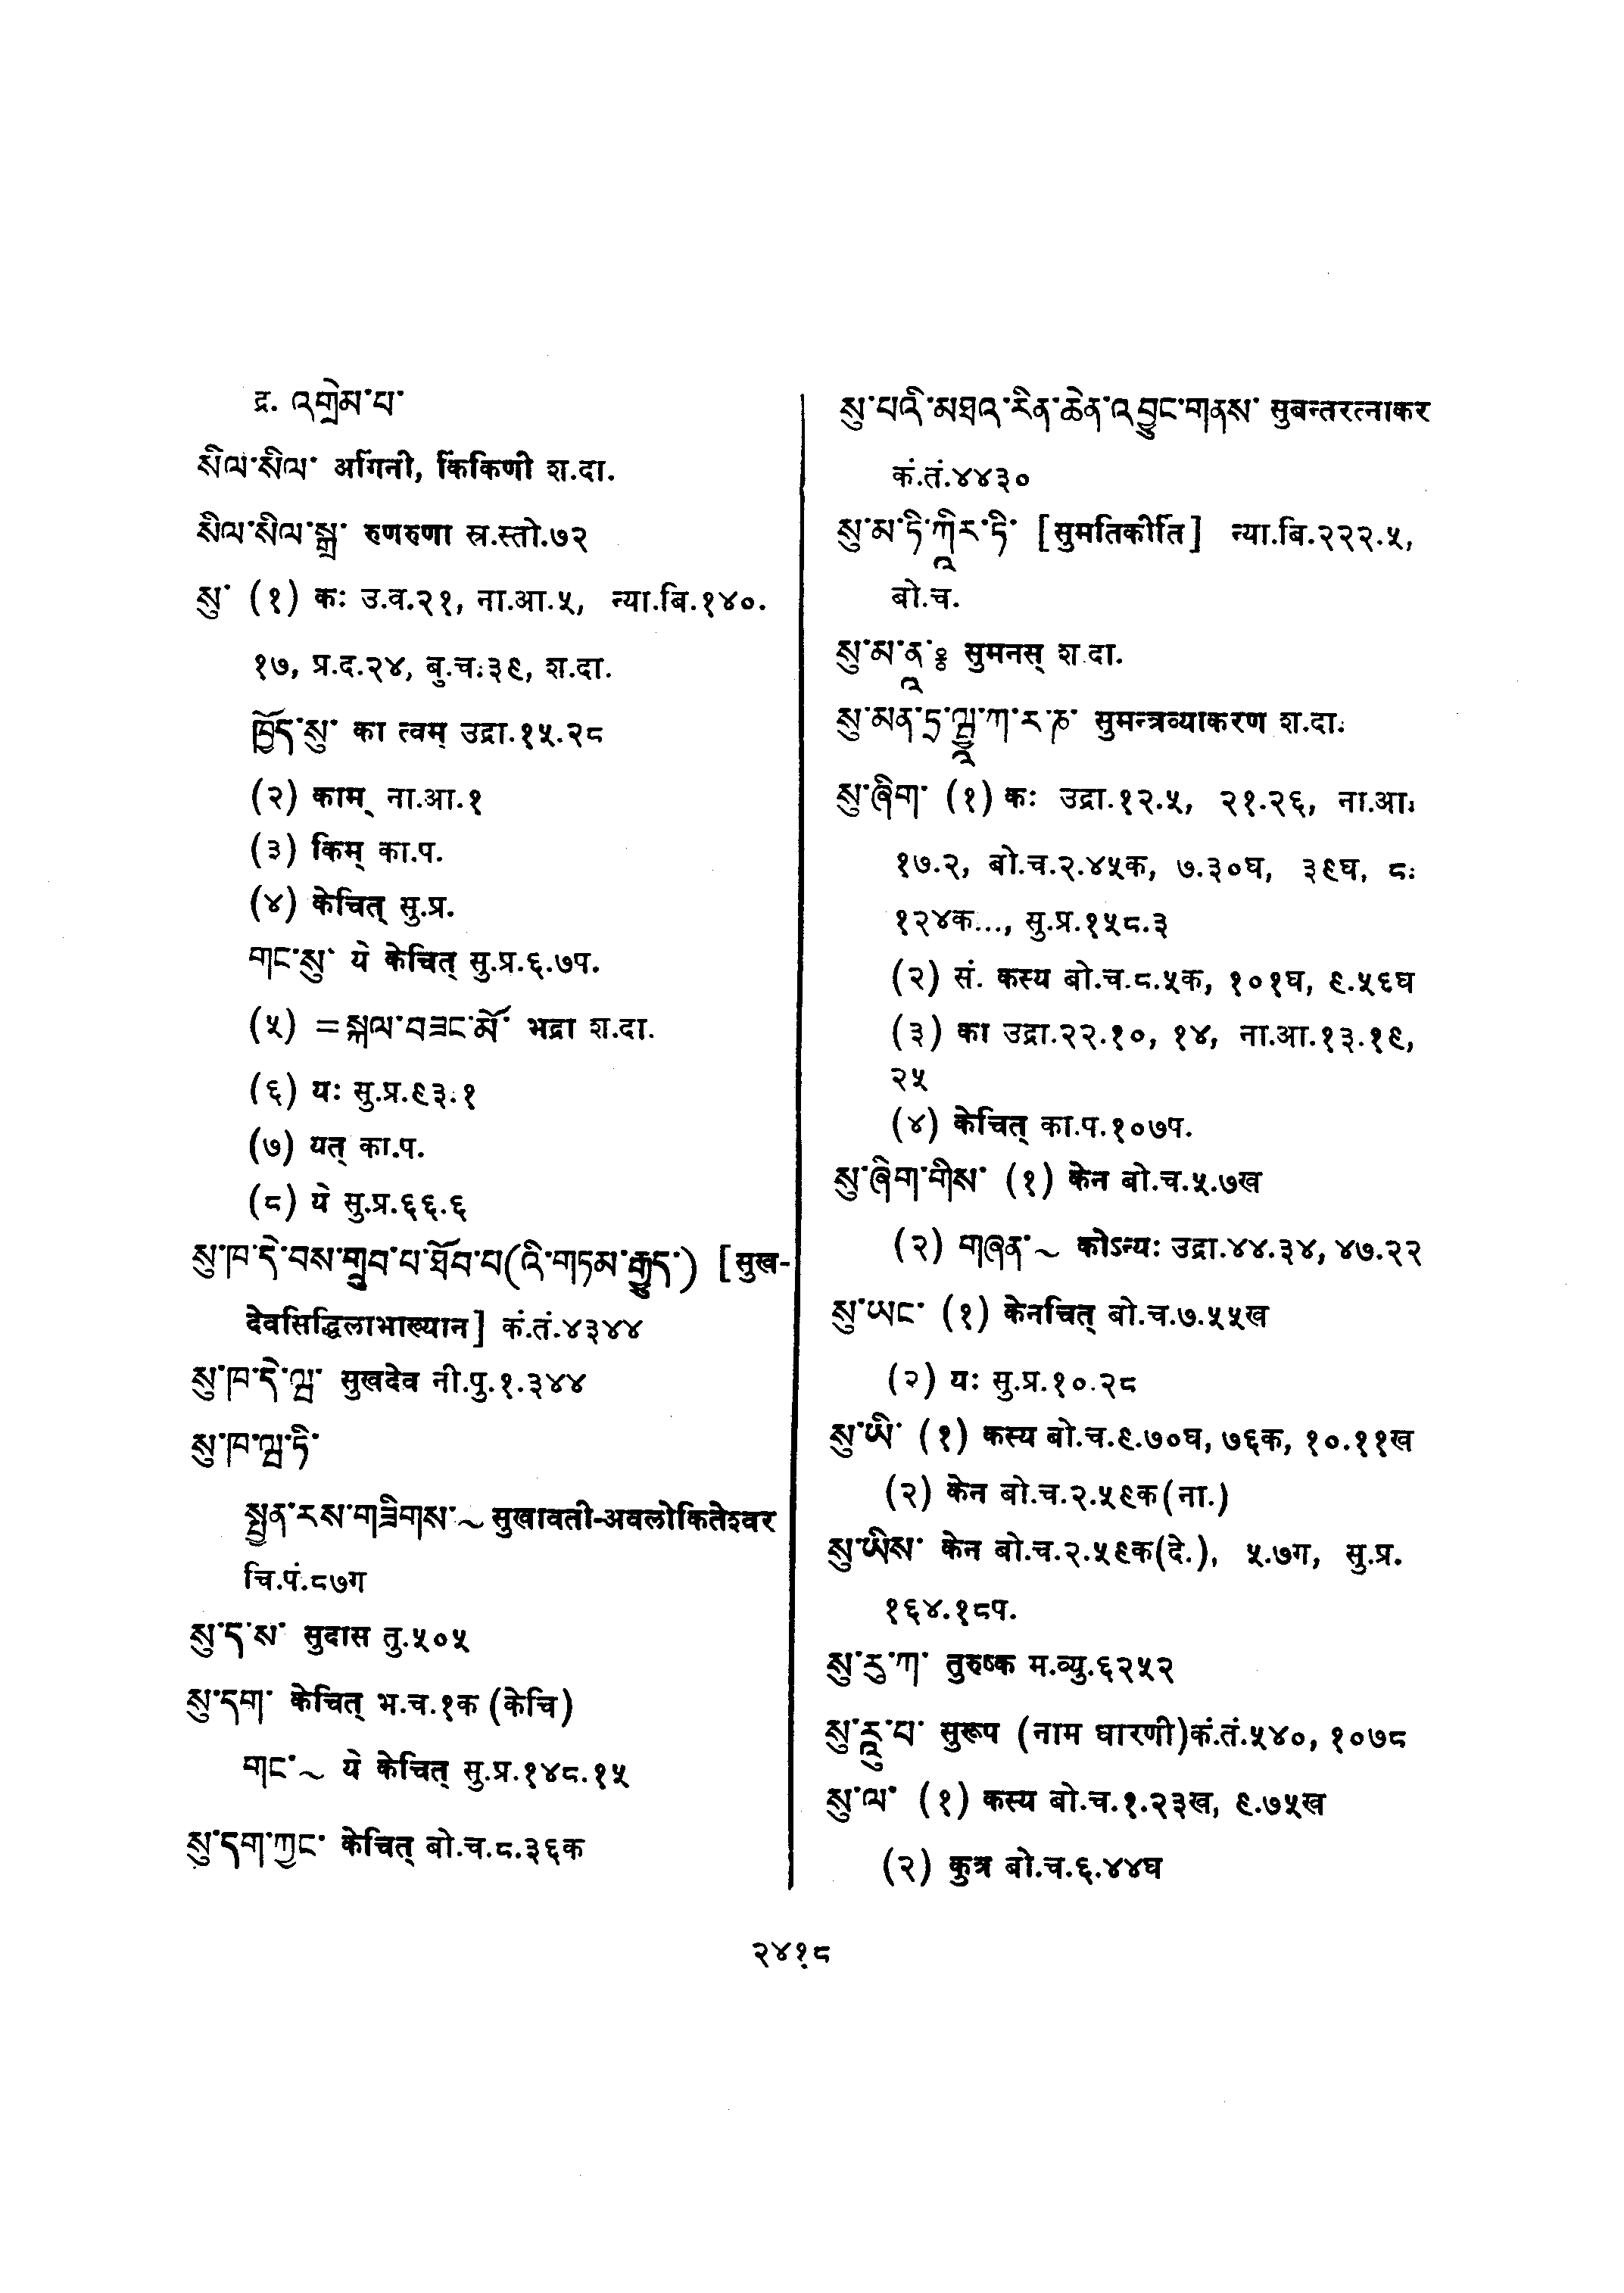 द्र. འགྲེམ་པ་
སིལ་སིལ་ अर्गिनी, किंकिणी श.दा.
སིལ་སིལ་སྒྲ་ रुणरुणा स्र.स्तो.७२
སུ་ (१) कः उ.व.२१, ना.आ.५, न्या.बि.१४०.
१७, प्र.द.२४, बु.च.३९, श.दा.
ཁྱོད་སུ་ का त्वम् उद्रा.१५.२८
(२) काम् ना.आ.१
(३) किम् का.प.
(४) केचित् सु.प्र.
གང་སུ་ ये केचित् सु.प्र.६.७प.
(५) =སྐལ་བཟང་མོ་ भद्रा श.दा.
(६) यः सु.प्र.९३.१
(७) यत् का.प.
(८) ये सु.प्र.६६.६
སུ་ཁ་དེ་བས་གྲུབ་པ་ཐོབ་པ(འི་གཏམ་རྒྱུད་) [सुख-
देवसिद्धिलाभाख्यान] कं.तं.४३४४
སུ་ཁ་དེ་ཝ་ सुखदेव नी.पु.१.३४४
སུ་ཁ་ཝ་ཏི་
སྤྱན་རས་གཟིགས་~ सुखावती-अवलोकितेश्वर
चि.पं.८७ग
སུ་ད་ས་ सुदास तु.५०५
སུ་དག་ केचित् भ.च.१क (केचि)
གང་~ ये केचित् सु.प्र.१४८.१५
སུ་དག་ཀྱང་ केचित् बो.च.८.३६क
སུ་པའི་མཐའ་རིན་ཆེན་འབྱུང་གནས་ सुबन्तरत्नाकर
कं.तं.४४३०
སུ་མ་ཏི་ཀཱིར་ཏི་ [सुमतिकीर्ति] न्या.बि.२२२.५,
बो.च.
སུ་མ་ནཱཿ सुमनस् श.दा.
སུ་མན་ཏྲ་ सुमन्त्रव्याकरण श.दा.
སུ་ཞིག་ (१) कः उद्रा.१२.५, २१.२६, ना.आ.
१७.२, बो.च.२.४५क, ७.३०घ, ३९घ, ८.
१२४क..., सु.प्र.१५८.३
(२) सं. कस्य बो.च.८.५क, १०१घ, ९.५६घ
(३) का उद्रा.२२.१०, १४, ना.आ.१३.१९,
२५
(४) केचित् का.प.१०७प.
སུ་ཞིག་གིས་ (१) केन बो.च.५.७ख
(२) གཞན་~ कोऽन्यः उद्रा.४४.३४, ४७.२२
སུ་ཡང་ (१) केनचित् बो.च.७.५५ख
(२) यः सु.प्र.१०.२८
སུ་ཡི་ (१) कस्य बो.च.९.७०घ, ७६क, १०.११ख
(२) केन बो.च.२.५९क(ना.)
སུ་ཡིས་ केन बो.च.२.५९क(दे.), ५.७ग, सु.प्र.
१६४.१८प.
སུ་རུ་ཀ་ तुरुष्क म.व्यु.६२५२
སུ་རཱུ་པ་ सुरूप (नाम धारणी)कं.तं.५४०, १०७८
སུ་ལ་ (१) कस्य बो.च.१.२३ख, ९.७५ख
(२) कुत्र बो.च.६.४४घ
२४१८